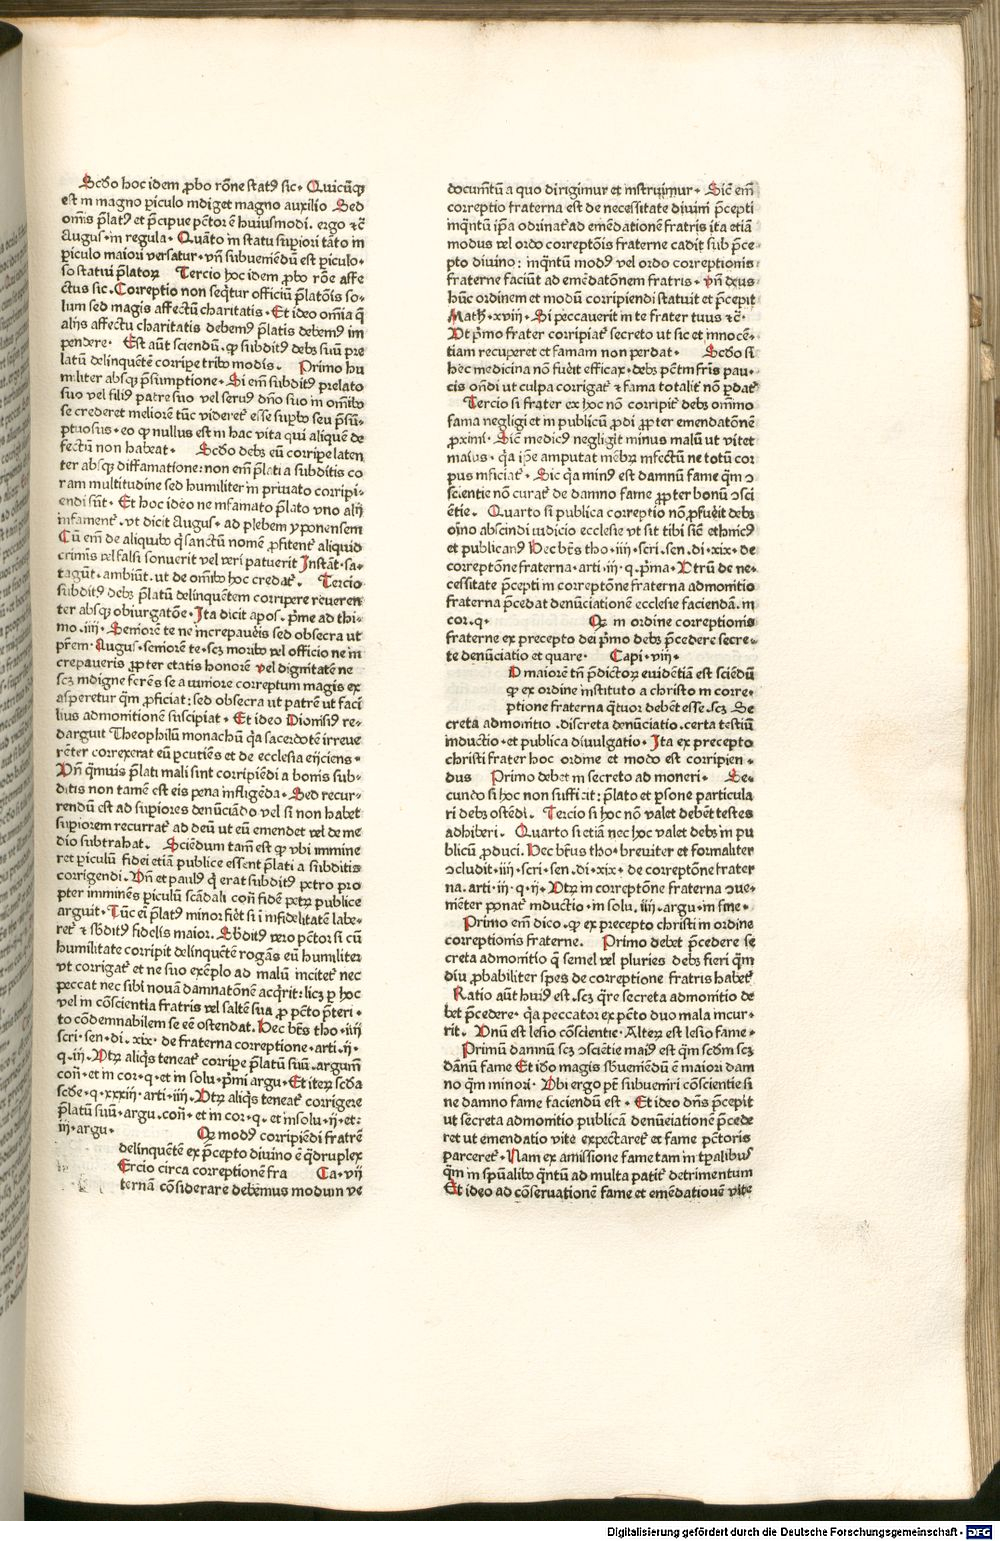 Scd̄o hoc idem ꝓbo rōne statꝰ sic. Quicūqꝫ
est in magno ꝑiculo indiget magno auxilio Sed
om̄is p̄latꝰ et p̄cipue pc̄tor ē huiusmodi. ergo ⁊c̄
Augus. in regula. Quāto in statu suꝑiori tāto in
ꝑiculo maiori versatur. vn̄ subueniēdū est ꝑiculo-
so statui p̄latoꝝ Tercio hoc idem ꝓbo rōe affe
ctus sic. Correptio non seq̄tur officiū p̄latōis so-
lum sed magis affectū charitatis. Et ideo om̄ia q̄
alijs affectu charitatis debemꝰ p̄latis debemꝰ im
pendere. Est aūt sciendū. ꝙ subditꝰ debꝫ suū pre
latū delinquētē corripe tribꝰ modis. Primo hu
militer absqꝫ p̄sumptione. Si em̄ subditꝰ prelato
suo vel filiꝰ patre suo vel seruꝰ dn̄o suo in om̄ibꝰ
se crederet meliorē tūc videret᷑ esse suꝑbꝰ seu p̄sū-
ptuosus. eo ꝙ nullus est in hac vita qui aliquē de
fectū non habeat. Scd̄o debꝫ eū corripe laten
ter absqꝫ diffamatione: non em̄ p̄lati a subditis co
ram multitudine sed humiliter in priuato corripi-
endi sūt. Et hoc ideo ne infamato p̄lato vno alij
infament᷑. vt dicit Augus. ad plebem yponensem
Cū em̄ de aliquibꝰ q̇ sanctū nomē ꝓfitent᷑ aliquid
criminis vel falsi sonuerit vel veri patuerit Instāt. sa-
tagūt. ambiūt. ut de om̄ibꝰ hoc credat᷑. Tercio
subditꝰ debꝫ p̄latū delinquētem corripere reueren
ter absqꝫ obiurgatōe. Ita dicit apos. pͥme ad thi-
mo. iiij. Seniorē te ne increpaueris sed obsecra ut
pr̄em. Augus. seniorē te. scꝫ moribꝰ vel officio ne in
crepaueris ꝓpter etatis honorē vel dignitatē ne
scꝫ indigne ferēs se a iuniore correptum magis ex
asperetur qͣm ꝓficiat: sed obsecra ut patrē ut faci
lius admonitionē suscipiat. Et ideo Dionisiꝰ re-
darguit Theophilū monachū qͥa sacerdotē irreue
rēter correxerat eū ꝑcutiēs et de ecclesia eijciens.
Vn̄ qͣmuis p̄lati mali sint corripiēdi a bonis sub-
ditis non tamē est eis pena infligēda. Sed recur-
rendū est ad suꝑiores denūciādo vel si non habet
suꝑiorem recurrat᷑ ad deū ut eū emendet vel de me
dio subtrahat. Sciēdum tam̄ est ꝙ vbi immine
ret ꝑiculū fidei etiā publice essent p̄lati a subditis
corrigendi. Vn̄ et paulꝰ q̇ erat subditꝰ petro pro
pter imminēs ꝑiculū scādali con̄ fidē petꝝ publice
arguit. Tūc ei p̄latꝰ minor fiet si i infidelitatē labe-
ret᷑ ⁊ sb̄ditꝰ fidelis maior. Sb̄ditꝰ vero pc̄tor si cū
humilitate corripit delinquētē rogās eū humiliter
vt corrigat᷑ et ne suo exēplo ad malū incitet᷑ nec
peccat nec sibi nouā damnatōnē acq̄rit: licꝫ ꝑ hoc
vel in cōscientia fratris vel saltē sua ꝓ pc̄to p̄teri-
to cōdemnabilem se eē ostendat. Hec bt̄s tho. iiij
scri. sen. di. xix. de fraterna correptione. arti. ij.
q. iij. Vtꝝ aliqͥs teneat᷑ corripe p̄latū suū. argum̄
con̄. et in cor. q. et in solu. pͥmi argu. Et iteꝝ scd̄a
scd̄e. q. xxxiij. arti. iiij. Vtꝝ aliqͥs teneat᷑ corrigere
p̄latū suū. argu. con̄. et in cor. q. et in solu. ij. et.
iij. argu. Qꝫ modꝰ corripiēdi fratrē
delinquētē ex p̄cepto diuino ē q̄druplex
Ercio circa correptionē fra Ca. vij
ternā cōsiderare debemus modum ve
documētū a quo dirigimur et instruimur. Sic̄ em̄
correptio fraterna est de necessitate diuini p̄cepti
inqͣntū ip̄a ordinat᷑ ad emēdationē fratris ita etiā
modus vel ordo correptōis fraterne cadit sub p̄ce-
pto diuino: inqͣntū modꝰ vel ordo correptionis
fraterne faciūt ad emēdatōnem fratris. vn̄ dn̄us
hūc ordinem et modū corripiendi statuit et p̄cepit
Math. xviij. Si peccauerit in te frater tuus ⁊c̄.
Vt pͥmo frater corripiat᷑ secreto ut sic et innocē-
tiam recuperet et famam non perdat. Scd̄o si
hec medicina nō fuerit efficax. debꝫ pc̄tm fr̄is pau-
cis ondi ut culpa corrigat᷑ ⁊ fama totalit᷑ nō ꝑdat᷑
Tercio si frater ex hoc nō corripit᷑ debꝫ omīno
fama negligi et in publicū ꝓdi ꝓpter emendatōnē
ꝓximi. Sic̄ medicꝰ negligit minus malū ut vitet
maius. qͥa ip̄e amputat mēbꝝ infectū ne totū cor
pus inficiat᷑. Sic qͥa minꝰ est damnū fame qͣm ↄ
scientie nō curat᷑ de damno fame ꝓpter bonū ↄsci
ētie. Quarto si publica correptio nō ꝓfuerit debꝫ
oīno abscindi iudicio ecclesie vt sit tibi sic̄ ethnicꝰ
et publicanꝰ Hec bt̄s tho. iiij. scri. sen. di. xix. de
correptōne fraterna. arti. iij. q. pͥma. Vtrū de ne-
cessitate p̄cepti in correptōne fraterna admonitio
fraterna p̄cedat denūciationē ecclesie faciendā. in
cor. q. Qꝫ in ordine correptionis
fraterne ex precepto dei pͥmo debꝫ p̄cedere secre-
te denūciatio et quare. Capi. viij.
D maiorē tn̄ p̄dictoꝝ euidentiā est sciēdū
ꝙ ex ordine instituto a christo in corre-
ptione fraterna q̄tuor debēt esse. scꝫ Se
creta admonitio. discreta denūciatio. certa testiū
inductio. et publica diuulgatio. Ita ex precepto
christi frater hoc ordine et modo est corripien-
dus Primo debet in secreto ad moneri. Se-
cundo si hoc non sufficit: p̄lato et ꝑsone particula
ri debꝫ ostēdi. Tercio si hoc nō valet debēt testes
adhiberi. Quarto si etiā nec hoc valet debꝫ in pu
blicū ꝓduci. Hec bt̄us tho. breuiter et formaliter
ↄcludit. iiij. scri. sen. di. xix. de correptōne frater
na. arti. ij. q. ij. Vtꝝ in correptōne fraterna ↄue-
niēter ponat᷑ inductio. in solu. iiij. argu. in fine.
Primo em̄ dico. ꝙ ex precepto christi in ordine
correptionis fraterne. Primo debet p̄cedere se
creta admonitio q̄ semel vel pluries debꝫ fieri qͣm
diu ꝓbabiliter spes de correptione fratris habet᷑
Ratio aūt huiꝰ est. scꝫ qͣre secreta admonitio de
bet p̄cedere. qͥa peccator ex pc̄to duo mala incur-
rit. Vnū est lesio cōscientie. Alteꝝ est lesio fame.
Primū damnū scꝫ ↄscientie maiꝰ est qͣm scd̄m scꝫ
dānū fame Et iō magis sb̄ueniēdū ē maiori dam
no qͣm minori. Vbi ergo pt̄ subueniri cōscientie si
ne damno fame faciendū est. Et ideo dn̄s p̄cepit
ut secreta admonitio publicā denūciationē p̄cede
ret ut emendatio vite expectaret᷑ et fame pc̄toris
parceret᷑. Nam ex amissione fame tam in tꝑalibꝰ
qͣm in spūalibꝰ qͣntū ad multa patit᷑ detrimentum
Et ideo ad cōseruationē fame et emēdationē vite
Digitalisierung gefördert durch die Deutsche Forschungsgemeinschaft - DFG